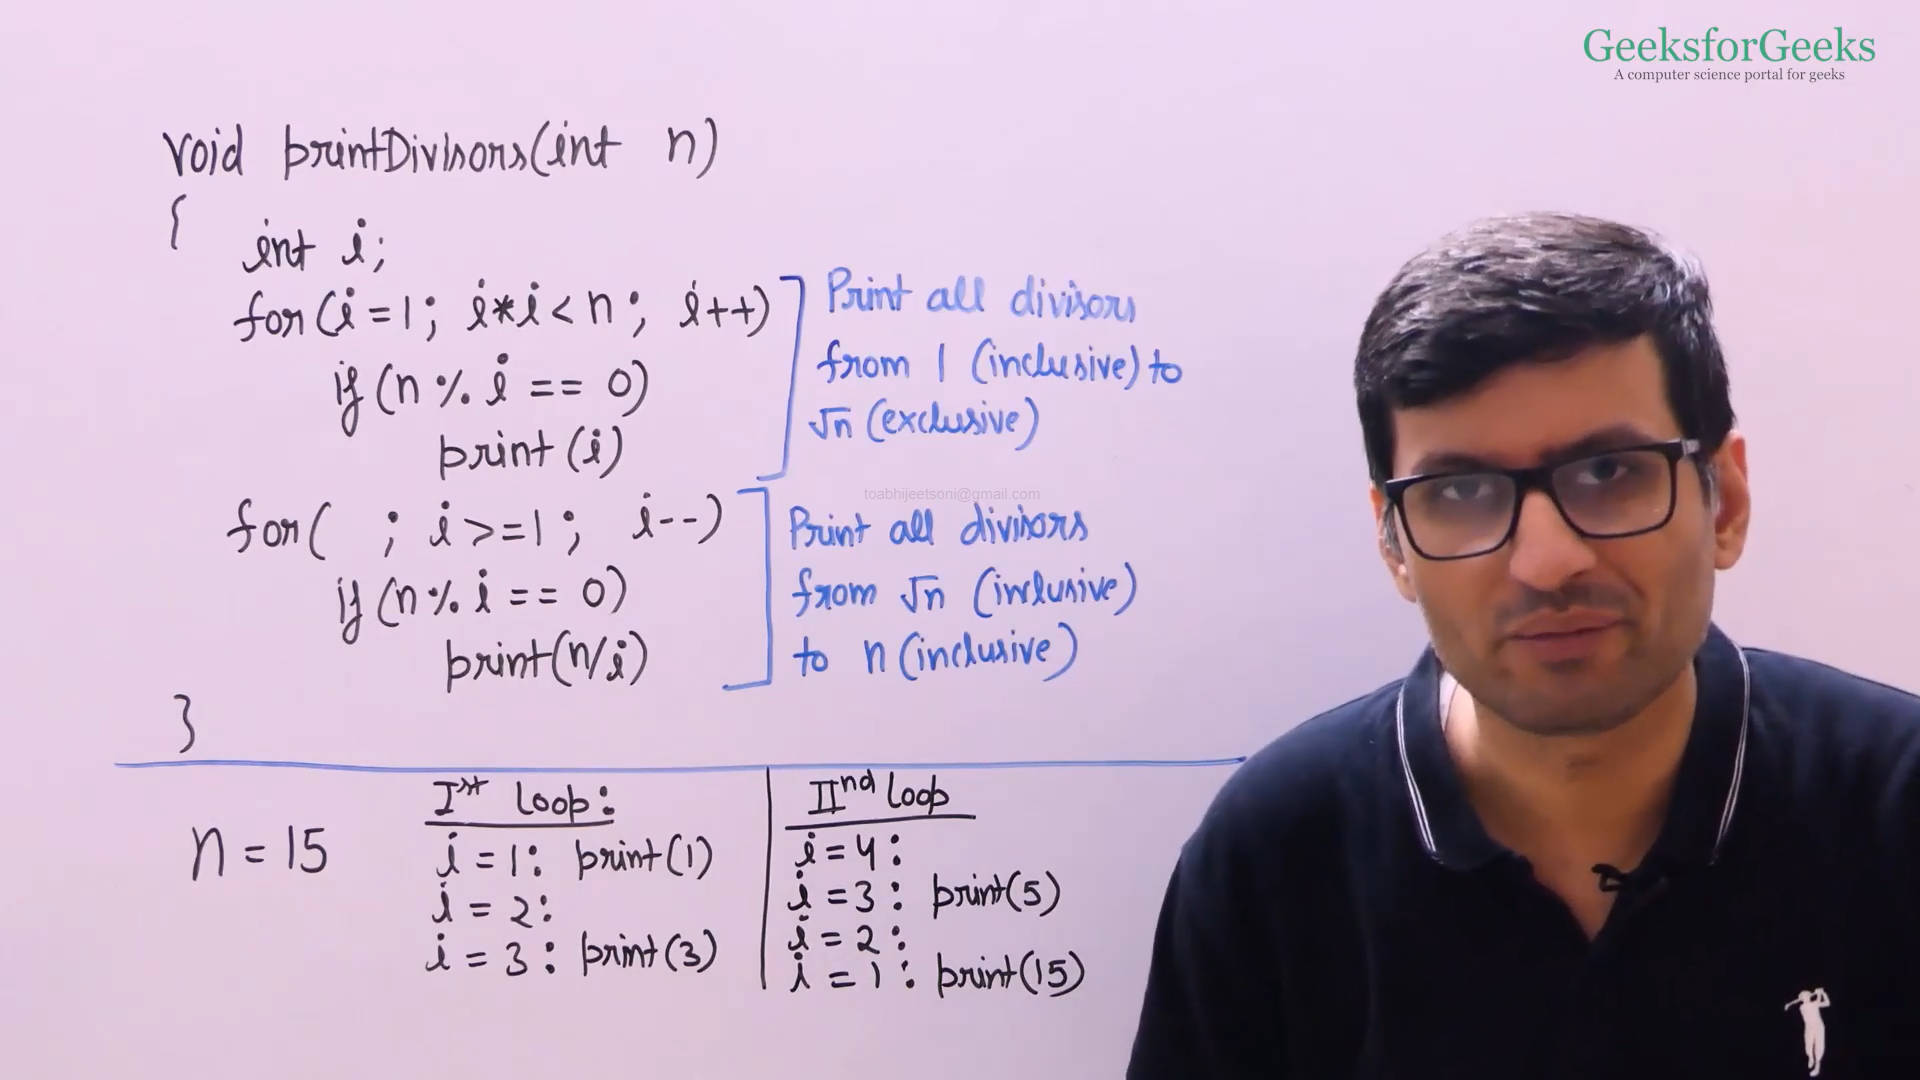 GeeksforGeeks
A computer science portal for geeks
void printDivisors(int n)
{
int i;
for(i=1; i*i<n; i++)
if(n % i == 0)
print(i)
for( ; i>=1; i--)
if(n % i == 0)
print(n/i)
}
Print all divisors
from 1 (inclusive) to
√n (exclusive)
toabhijeetsoni@gmail.com
Print all divisors
from √n (inclusive)
to n (inclusive)
n = 15
Ist Loop:
i = 1: print(1)
i = 2:
i = 3: print(3)
IInd Loop
i = 4:
i = 3: print(5)
i = 2:
i = 1: print(15)